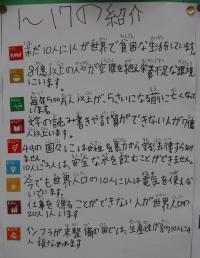 1~17の紹介
未だ10人に1人が世界で貧困な生活をしています。
8億以上の人々が空腹を抱え栄養不足な環境
にいます。
毎年500万人以上が、5さいになる前に亡くなって
います。
文字の読み書きや計算ができない人が7億
人以上います。
49の国々には女性を暴力から守る法律すらあり
ません。
10人に3人は、安全な水を飲むことができません。
今でも世界人口の10人に1人は電気を使えな
いでいます。
仕事を得ることができない人が世界人口の
20人に1人います
インフラが未整備の国では、生産性が約10人に4人